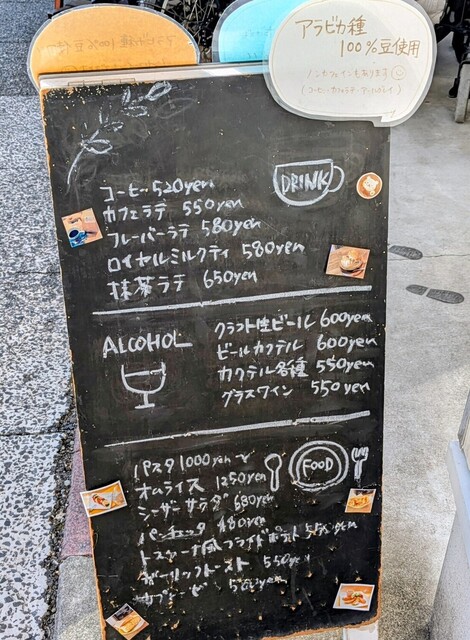 アラビカ種
100%豆使用
ノンカフェインもあります
アラビカ種
100%豆使用
DRINK
コーヒー 520yen
カフェラテ 550yen
フレーバーラテ 580yen
ロイヤルミルクティ 580yen
抹茶ラテ 650yen
ALCOHOL
クラフト生ビール 600yen
ビールカクテル 600yen
カクテル各種 550yen
グラスワイン 550yen
FOOD
パスタ 1000yen~
オムライス 1250yen
シーザーサラダ 680yen
480yen
トスカーナ風フライドポテト 550yen
ガーリックトースト 550yen
500yen